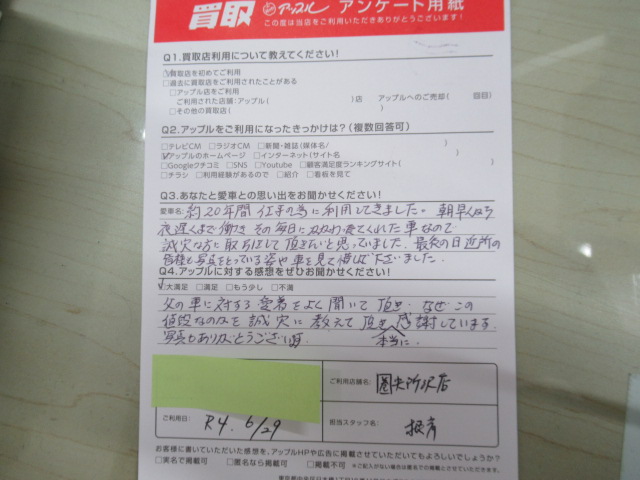 買取 アップル アンケート用紙
この度は当店をご利用いただきありがとうございます!
Q1.買取店利用について教えてください!
☑買取店を初めてご利用
□過去に買取店をご利用されたことがある
□アップル店をご利用
ご利用された店舗:アップル( )店 アップルへのご売却( 回目)
□その他の買取店( )
Q2.アップルをご利用になったきっかけは?(複数回答可)
□テレビCM □ラジオCM □新聞・雑誌(媒体名/
☑アップルのホームページ □インターネット(サイト名
□Googleクチコミ □SNS □Youtube □顧客満足度ランキングサイト(
□チラシ □利用経験があるので □紹介 □看板を見て
Q3.あなたと愛車との思い出をお聞かせください!
愛車名:約20年間仕事の為に利用してきました。朝早くから
夜遅くまで働き その毎日に てくれた車なので
誠実な方に取引して頂きたいと思っていました。最後の日近所の
皆様も写真をとっている姿や車を見て惜しんで下さいました。
Q4.アップルに対する感想をぜひお聞かせください!
☑大満足 □満足 □もう少し □不満
父の車に対する愛着をよく聞いて頂き なぜこの
値段なのかを誠実に教えて頂き 感謝しています。
本当に
写真もありがとうございます
ご利用店舗名: 圏央所沢店
ご利用日: R4. 6/29
担当スタッフ名:
お客様に書いていただいた感想を、アップルHPや広告に掲載させていただいてもよろしいでしょうか?
□実名で掲載可 □匿名なら掲載可 □掲載不可 ※ご記入がない場合は匿名での掲載とさせていただきます。